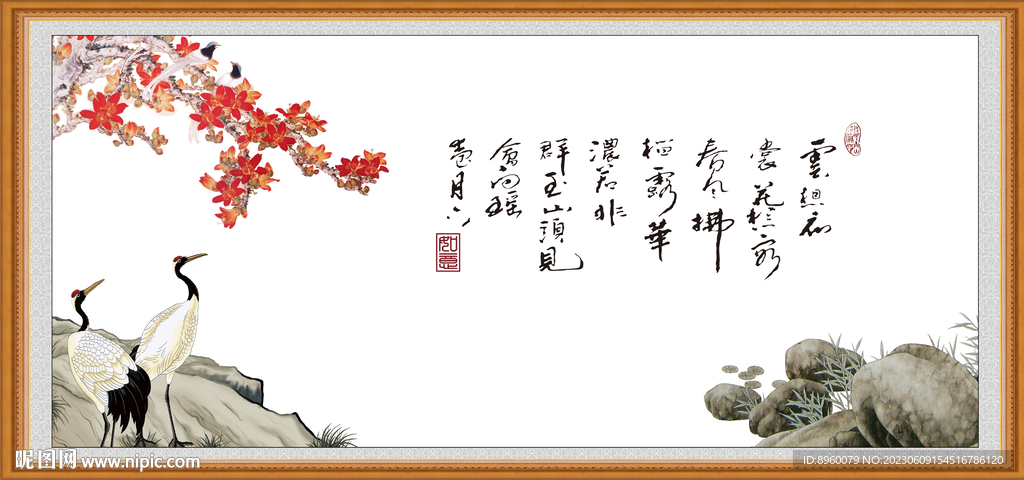 雲想衣
裳花想容
春风拂
檻露華
濃若非
群玉山頭見
會向瑤
臺月下
如意
昵图网 www.nipic.com
ID:8960079 NO:20230609154516786120